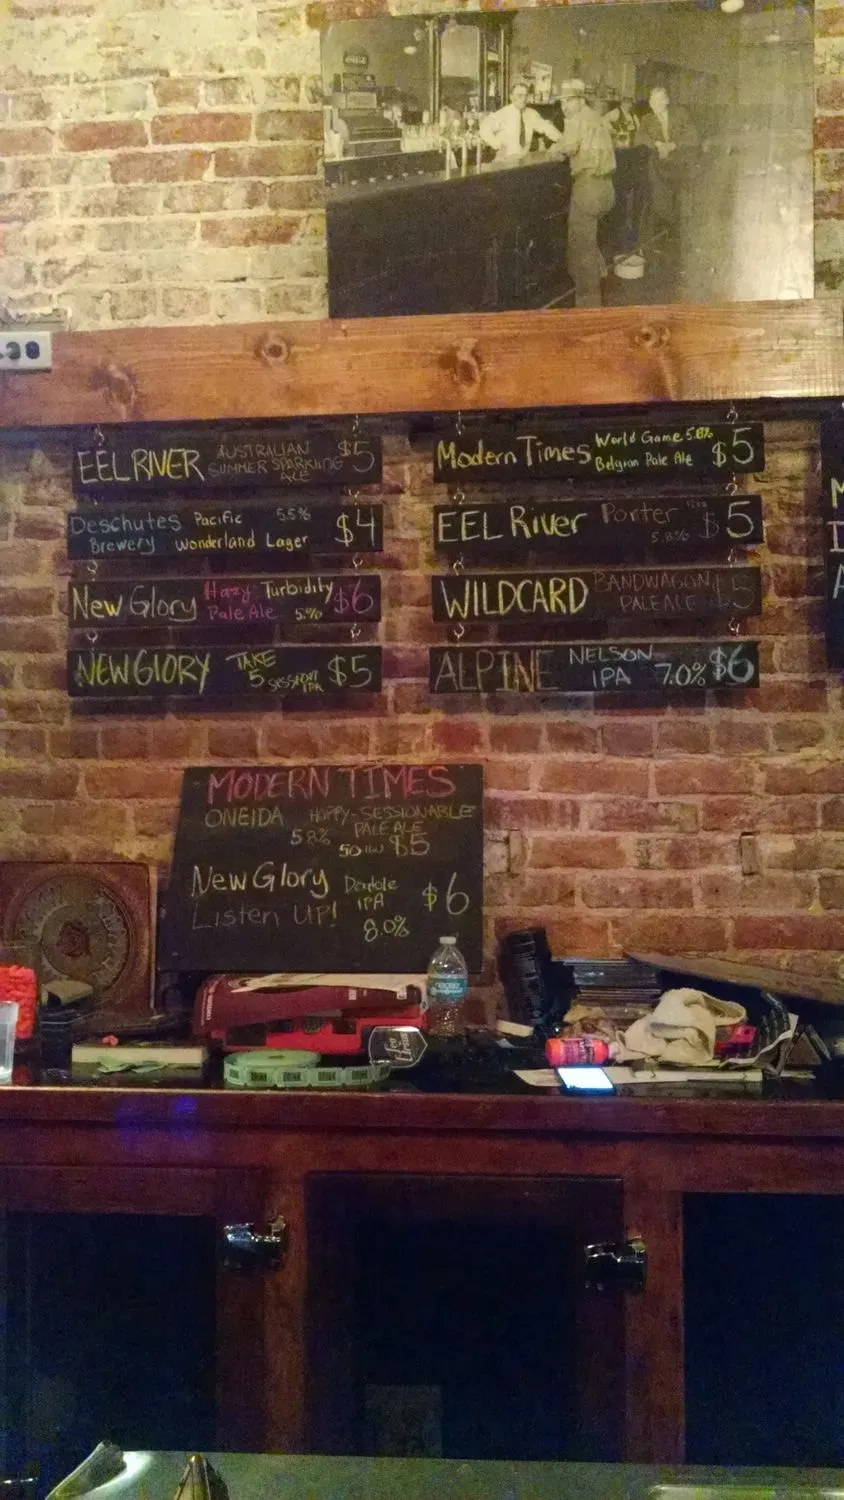 EEL RIVER AUSTRALIAN SUMMER SPARKLING ALE $5
Deschutes Brewery Pacific Wonderland Lager 5.5% $4
New Glory Hazy Pale Ale Turbidity 5.% $6
NEW GlORY TAKE 5 SESSION IPA $5
Modern Times World Game 5.8% Belgian Pale Ale $5
EEL River Porter 5.8% $5
WILDCARD BANDWAGON PALE ALE $5
ALPINE NELSON IPA 7.0% $6
MODERN TIMES
ONEIDA HOPPY-SESSIONABLE
PALE ALE
5.8% 50 IBU $5
New Glory Double
IPA $6
Listen UP!
8.0%